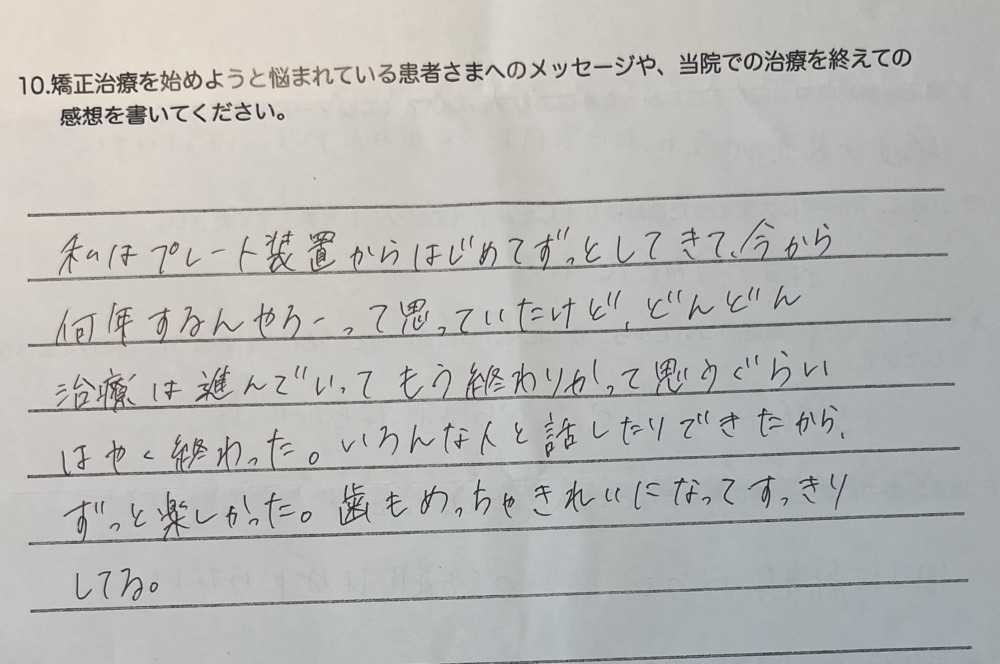 10.矯正治療を始めようと悩まれている患者さまへのメッセージや、当院での治療を終えての
感想を書いてください。
私はプレート装置からはじめてずっとしてきて、今から
何年するんやろーって思っていたけど、どんどん
治療は進んでいってもう終わりかって思うぐらい
はやく終わった。いろんな人と話したりできたから、
ずっと楽しかった。歯もめっちゃきれいになってすっきり
してる。